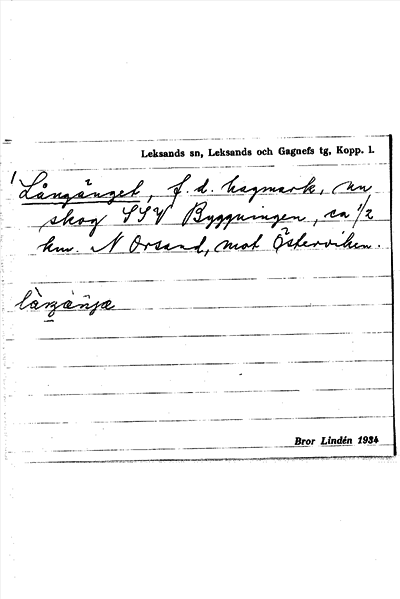 Leksands sn, Leksands och Gagnefs tg, Kopp. l.
1 Långänget, f. d. hagmark, nu
skog SSV Byggningen, ca 1/2
km. N Orsand, mot Österviken.
Bror Lindén 1934